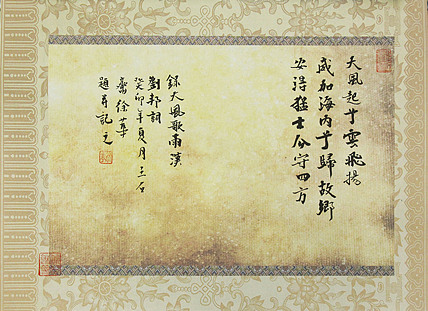 天風起兮雲飛揚
威加海内兮歸故鄉
安得猛士兮守四方
錄大風歌漢
劉邦詞
癸卯年夏月三石
齋徐
題并記之